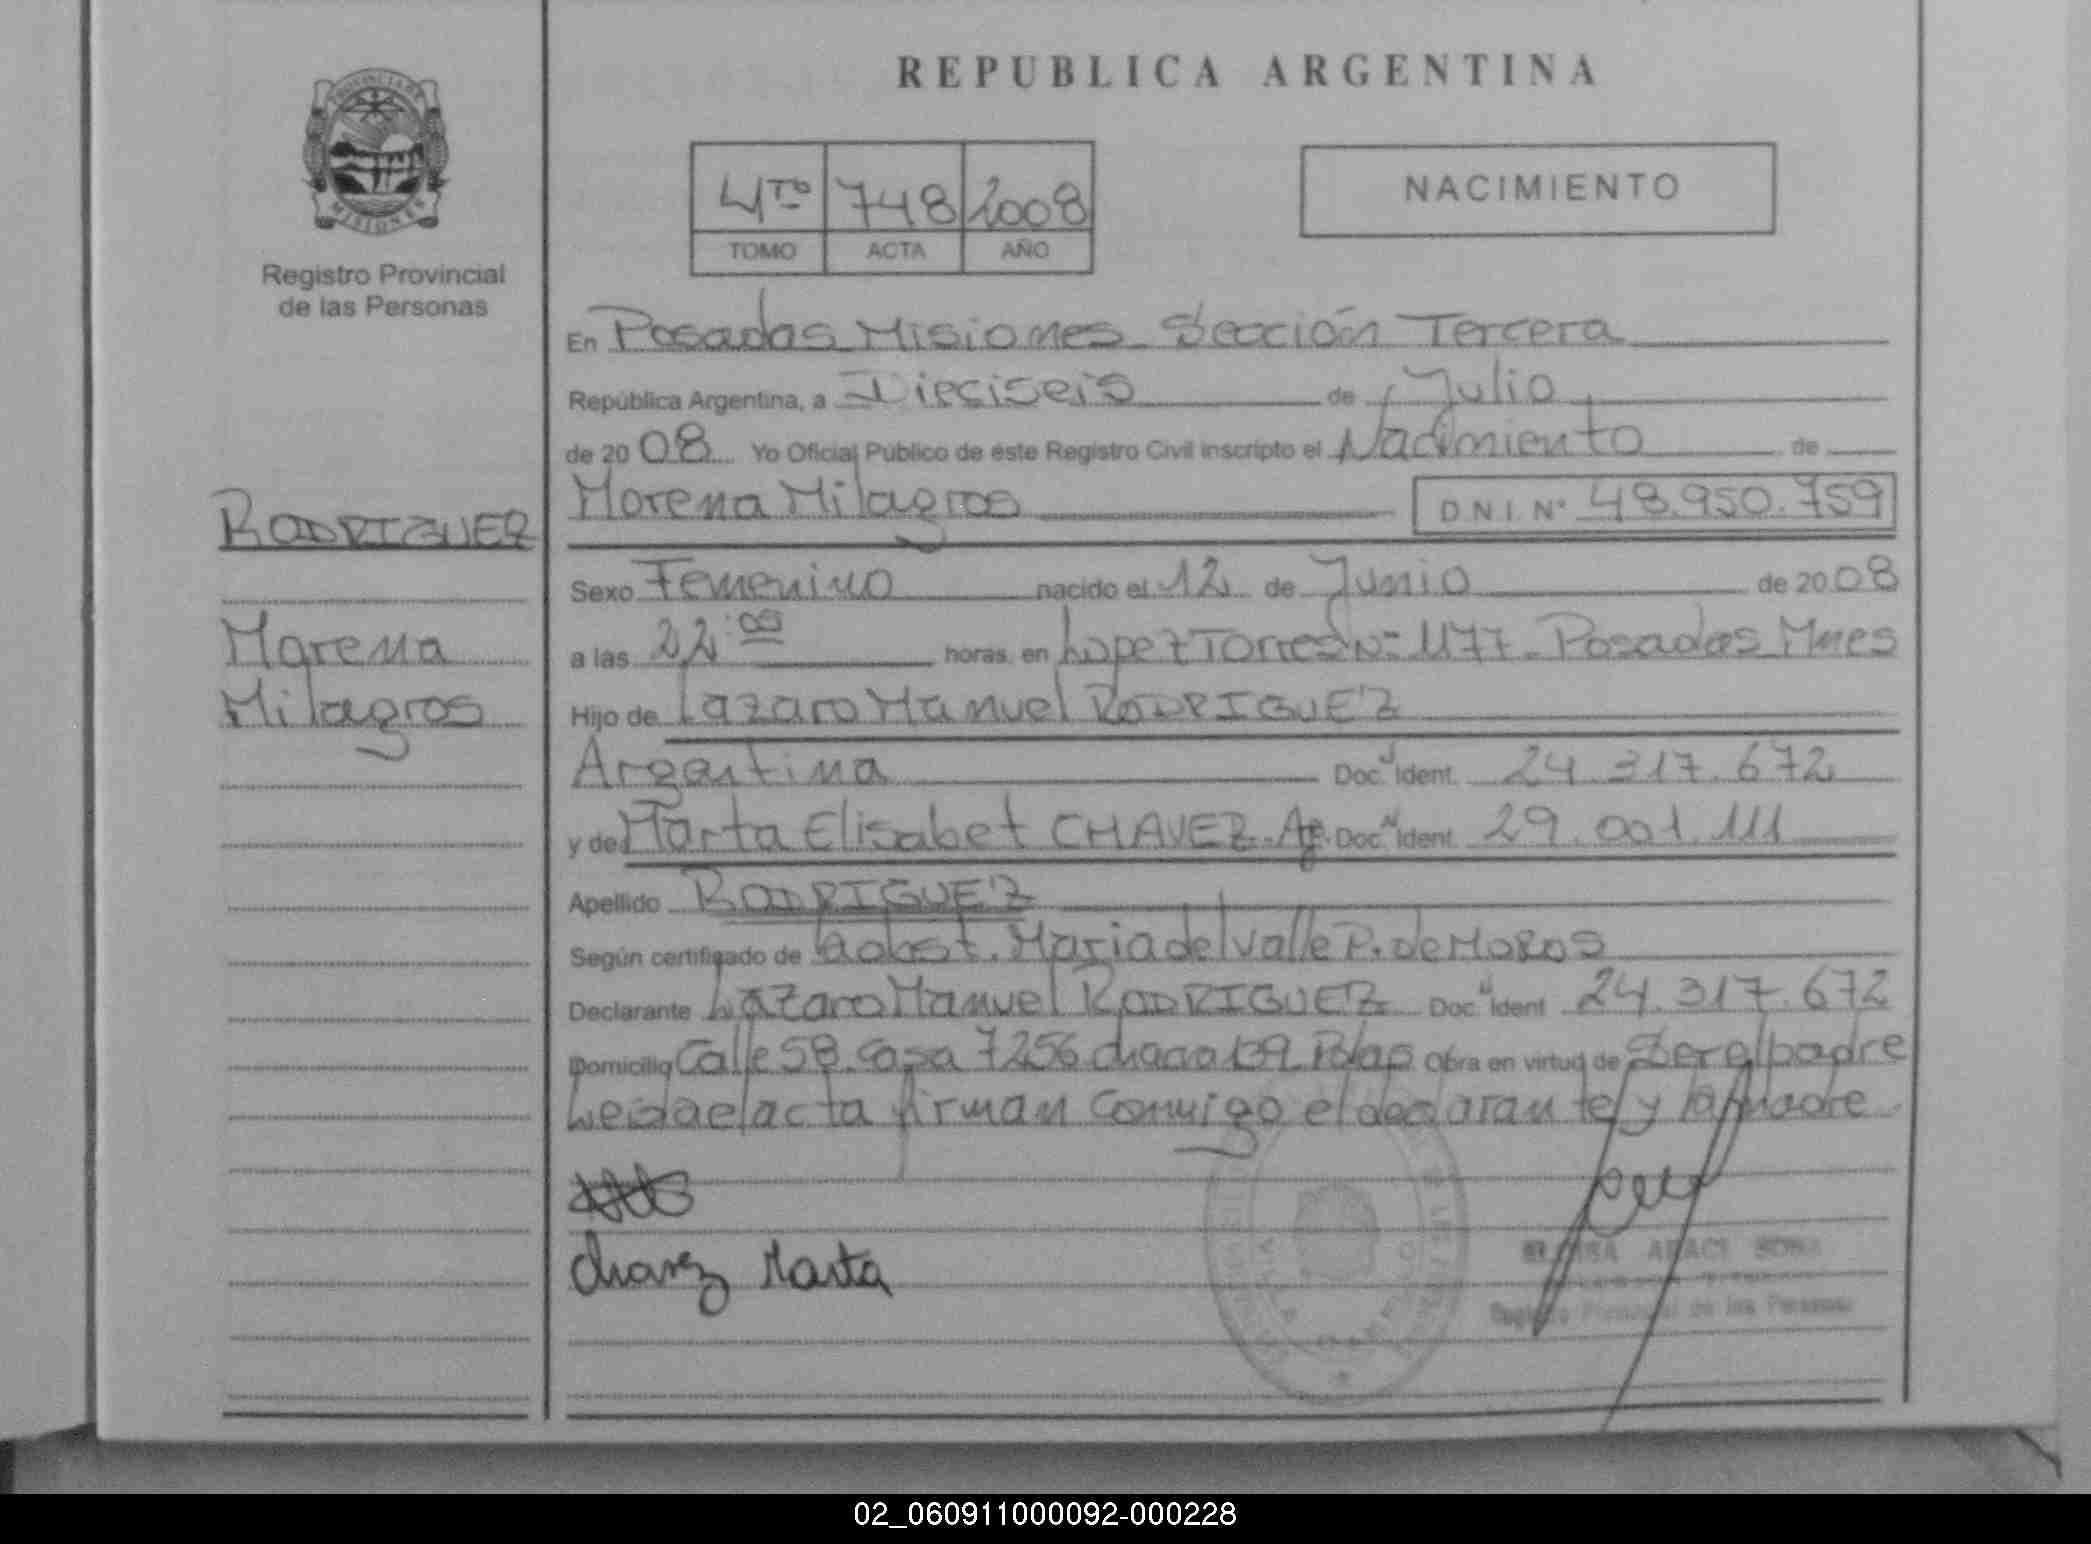 REPUBLICA ARGENTINA
PROVINCIA DE
MISIONES
Registro Provincial
de las Personas
4to 748 2008
TOMO ACTA AÑO
NACIMIENTO
En Posadas Misiones Sección Tercera
República Argentina, a Dieciseis de Julio
de 20 08 Yo Oficial Público de éste Registro Civil inscripto el Nacimiento de
Morena Milagros D.N.I. Nº 48.950.759
RODRIGUEZ
Morena
Milagros
Sexo Femenino nacido el 12 de Junio de 20 08
a las 22:00 horas, en Lopez Torres Nº 1177 - Posadas Mnes
Hijo de Lazaro Manuel RODRIGUEZ
Argentina Doc. Ident. 24.317.672
y de Marta Elisabet CHAVEZ - Ag. Doc. Ident. 29.001.111
Apellido RODRIGUEZ
Según certificado de Maria del Valle P. de MOROS
Declarante Lazaro Manuel RODRIGUEZ Doc. Ident 24.317.672
Domicilio Calle 58 Casa 7256 chacra 139 Pdas Obra en virtud de Ser el padre
Leida el acta firman conmigo el declarante y la madre
Chavez Marta
Registro Provincial de las Personas
02_060911000092-000228